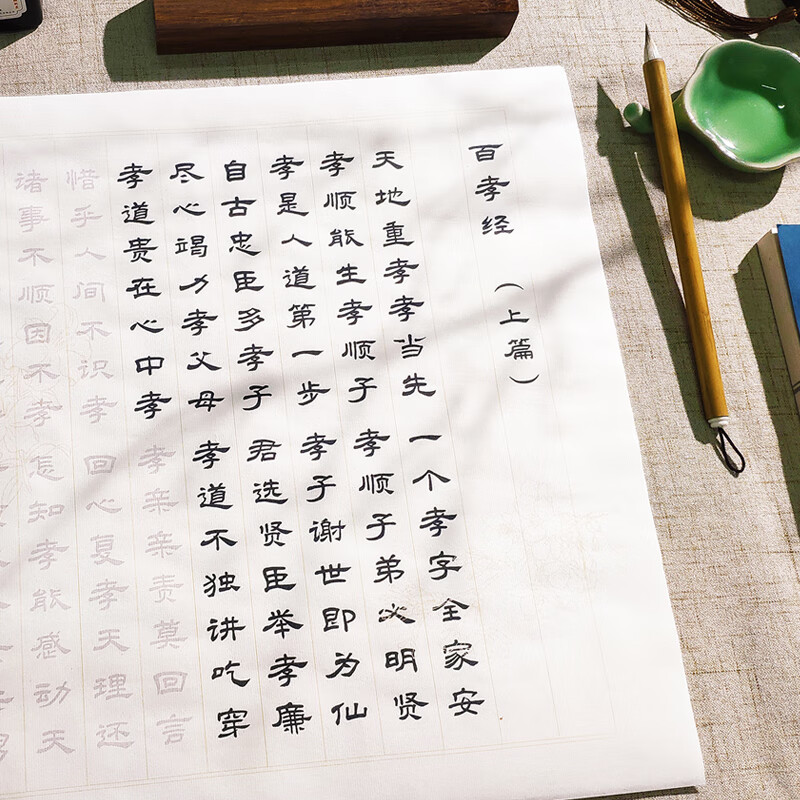 百孝经（上篇）
天地重孝孝当先 一个孝字全家安
孝顺能生孝顺子 孝顺子弟必明贤
孝是人道第一步 孝子谢世即为仙
自古忠臣多孝子 君选贤臣举孝廉
尽心竭力孝父母 孝道不独讲吃穿
孝道贵在心中孝 孝亲亲责莫回言
惜乎人间不识孝 回心复孝天理还
诸事不顺因不孝 怎知孝能感动天